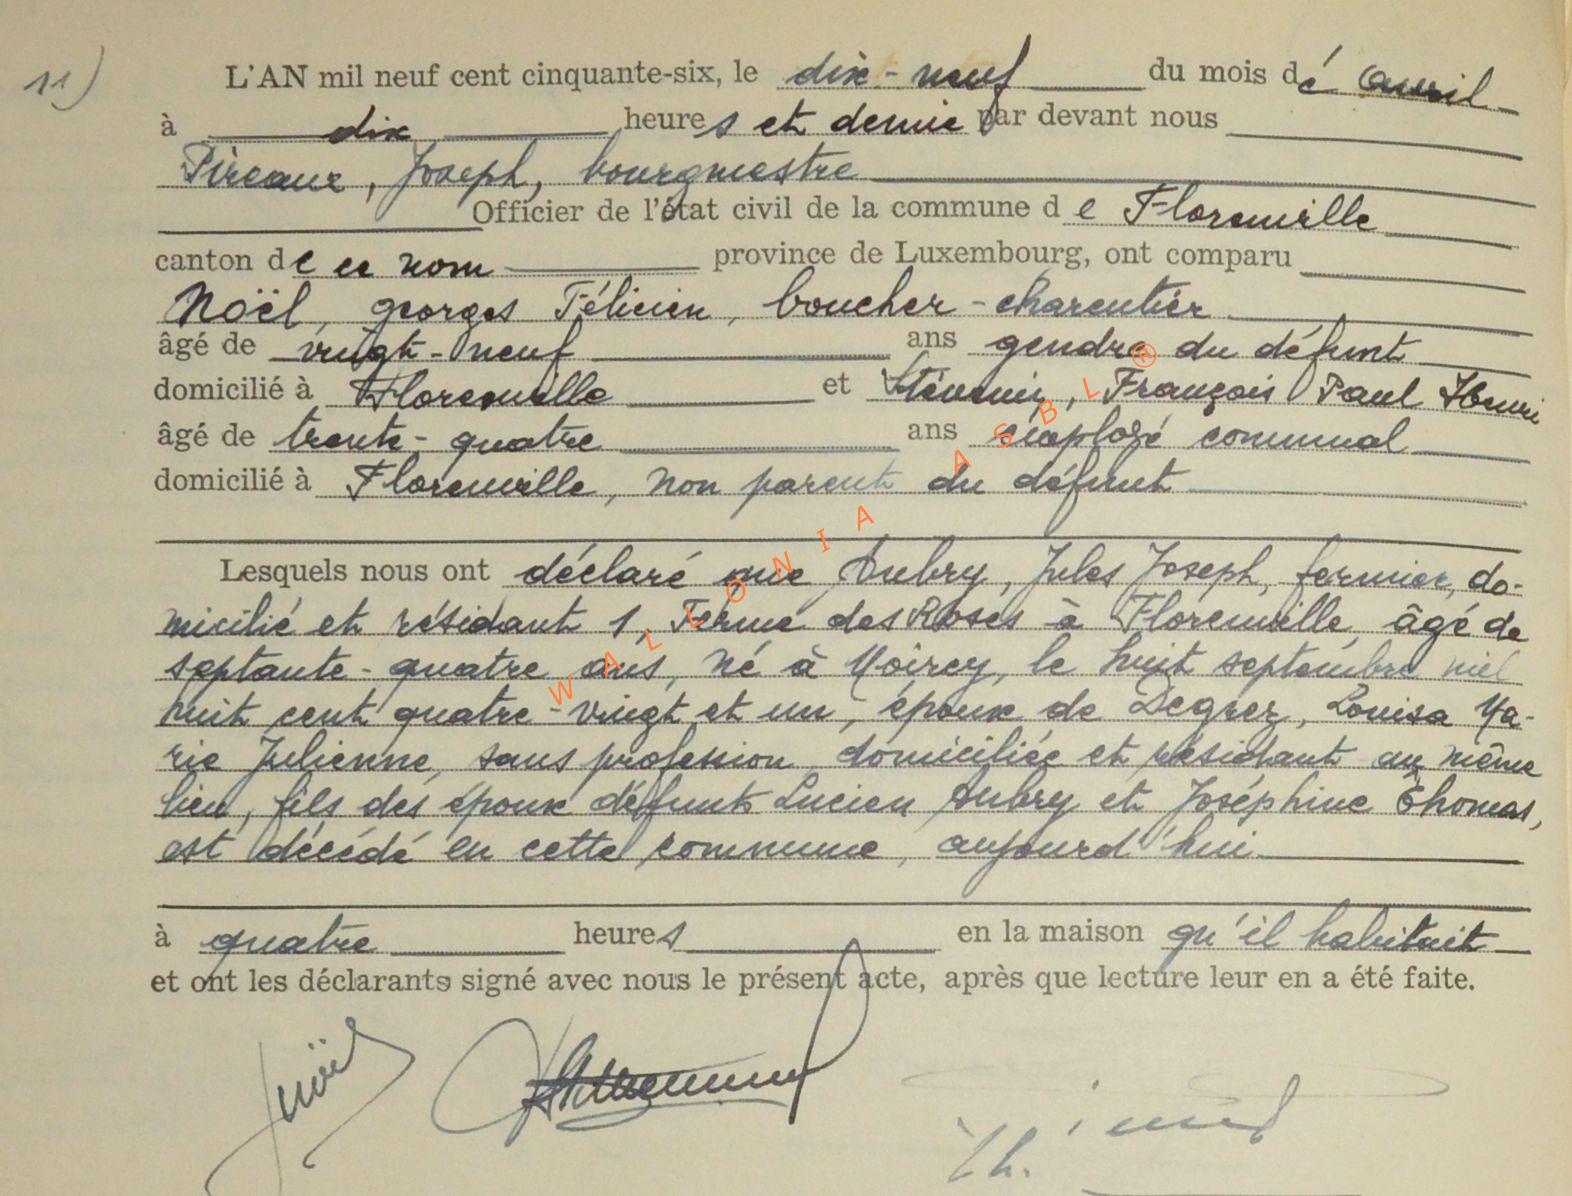 11)
L'AN mil neuf cent cinquante-six, le dix-neuf du mois de avril
à dix heures et demie par devant nous
Pireaux, Joseph, bourgmestre
Officier de l'état civil de la commune de Florenville
canton de ce nom province de Luxembourg, ont comparu
Noël, Georges Félicien, boucher-charcutier
âgé de vingt-neuf ans gendre du défunt
domicilié à Florenville et François Paul Henri
âgé de trente-quatre ans employé communal
domicilié à Florenville, non parent du défunt
Lesquels nous ont déclaré que Aubry, Jules Joseph, fermier, do-
micilié et résidant 1, Ferme des Roses à Florenville, âgé de
septante-quatre ans, né à Moircy, le huit septembre mil
huit cent quatre-vingt et un, époux de Degrez, Louisa Ma-
rie Julienne, sans profession, domiciliée et résidant au même
lieu, fils des époux défunts Lucien Aubry et Joséphine Thomas,
est décédé en cette commune, aujourd'hui
à quatre heures en la maison qu'il habitait
et ont les déclarants signé avec nous le présent acte, après que lecture leur en a été faite.
Noël
WALLONIA ASBL ®